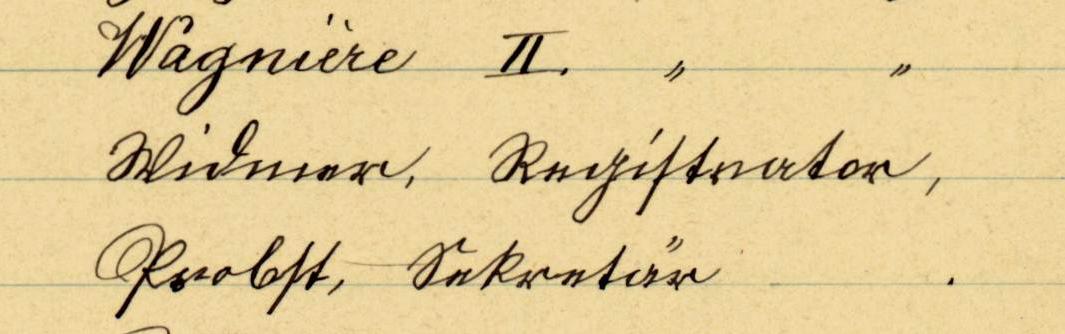 Wagnière II. " "
Widmer, Registrator,
Probst, Sekretär .